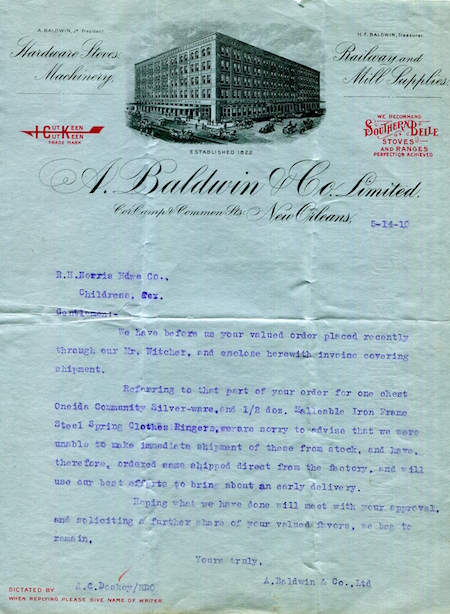 A. BALDWIN, Jr President.
H. F. BALDWIN, Treasurer.
Hardware Stoves,
Machinery,
Railway and
Mill Supplies.
I CUT KEEN
CUT KEEN
TRADE MARK
WE RECOMMEND
SOUTHERN BELLE
STOVES
AND RANGES
PERFECTION ACHIEVED
ESTABLISHED 1822
A. Baldwin & Co. Limited.
Cor. Camp & Common Sts. New Orleans,
5-14-10
R.H.Norris Hdwe Co.,
Childress, Tex.
Gentlemen:-
We have before us your valued order placed recently
through our Mr. Witcher, and enclose herewith invoice covering
shipment.
Referring to that part of your order for one chest
Oneida Community Silver-ware,and 1/2 doz. Malleable Iron Frame
Steel Spring Clothes Ringers,we are sorry to advise that we were
unable to make immediate shipment of these from stock, and have,
therefore, ordered same shipped direct from the factory, and will
use our best efforts to bring about an early delivery.
Hoping what we have done will meet with your approval,
and soliciting a further share of your valued favors, we beg to
remain,
Yours truly,
A.Baldwin & Co.,Ltd
DICTATED BY
WHEN REPLYING PLEASE GIVE NAME OF WRITER